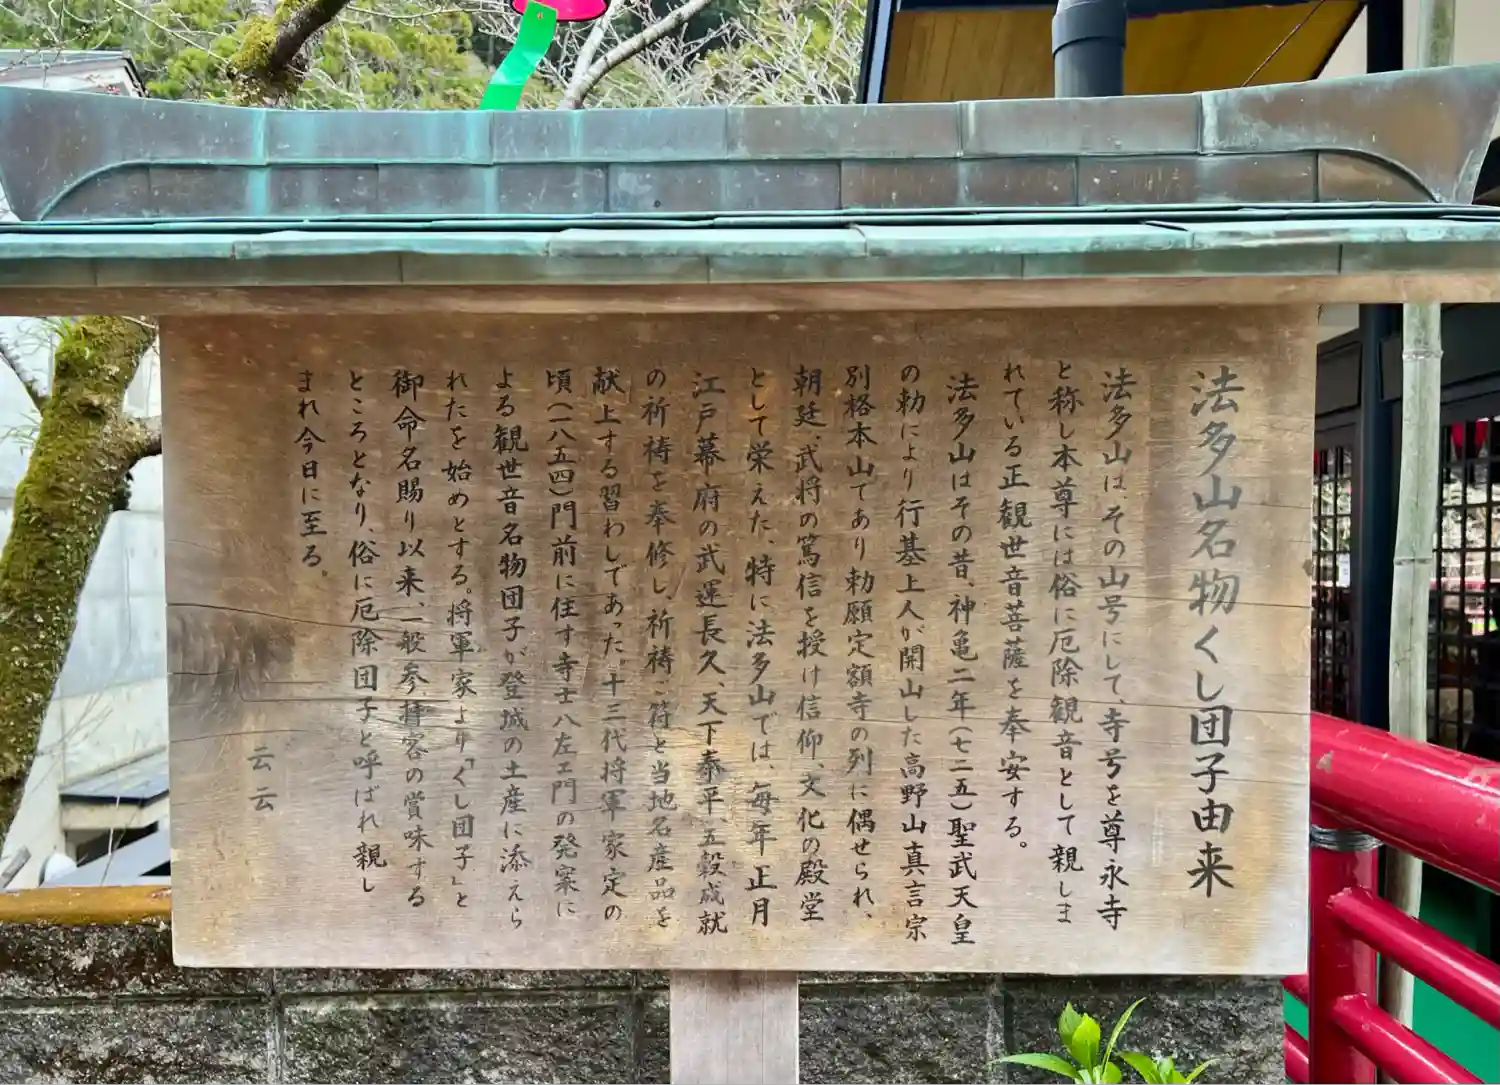 法多山名物くし団子由来
法多山は、その山号にして、寺号を尊永寺
と称し本尊には俗に厄除観音として親しま
れている正観世音菩薩を奉安する。
法多山はその昔、神亀二年(七二五)聖武天皇
の勅により行基上人が開山した高野山真言宗
別格本山であり勅願定額寺の列に偶せられ、
朝廷、武将の篤信を授け信仰、文化の殿堂
として栄えた、特に法多山では、毎年正月
江戸幕府の武運長久、天下泰平、五穀成就
の祈祷を奉修し祈祷ご符と当地名産品を
献上する習わしであった。十三代将軍家定の
頃(一八五四)門前に住す寺士八左ェ門の発案に
よる観世音名物団子が登城の土産に添えら
れたを始めとする。将軍家より「くし団子」と
御命名賜り以来、一般参拝客の賞味する
ところとなり、俗に厄除団子と呼ばれ親し
まれ今日に至る。
云云